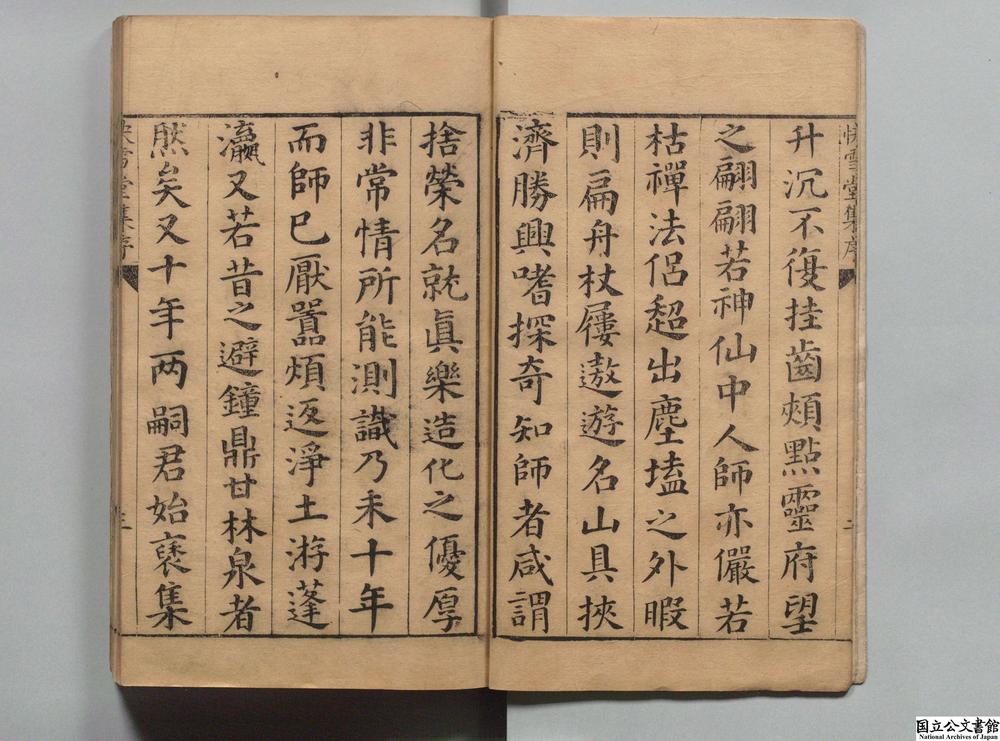 快雪堂集序
二
升沉不復挂齒頰點靈府望
之翩翩若神仙中人師亦儼若
枯禪法侣超出塵壒之外暇
則扁舟杖屨遨遊名山具挾
濟勝興嗜探奇知師者咸謂
捨榮名就眞樂造化之優厚
非常情所能測識乃未十年
而師已厭囂煩返淨土游蓬
瀛又若昔之避鐘鼎甘林泉者
然矣又十年两嗣君始裒集
快雪堂集序
三
国立公文書館
National Archives of Japan